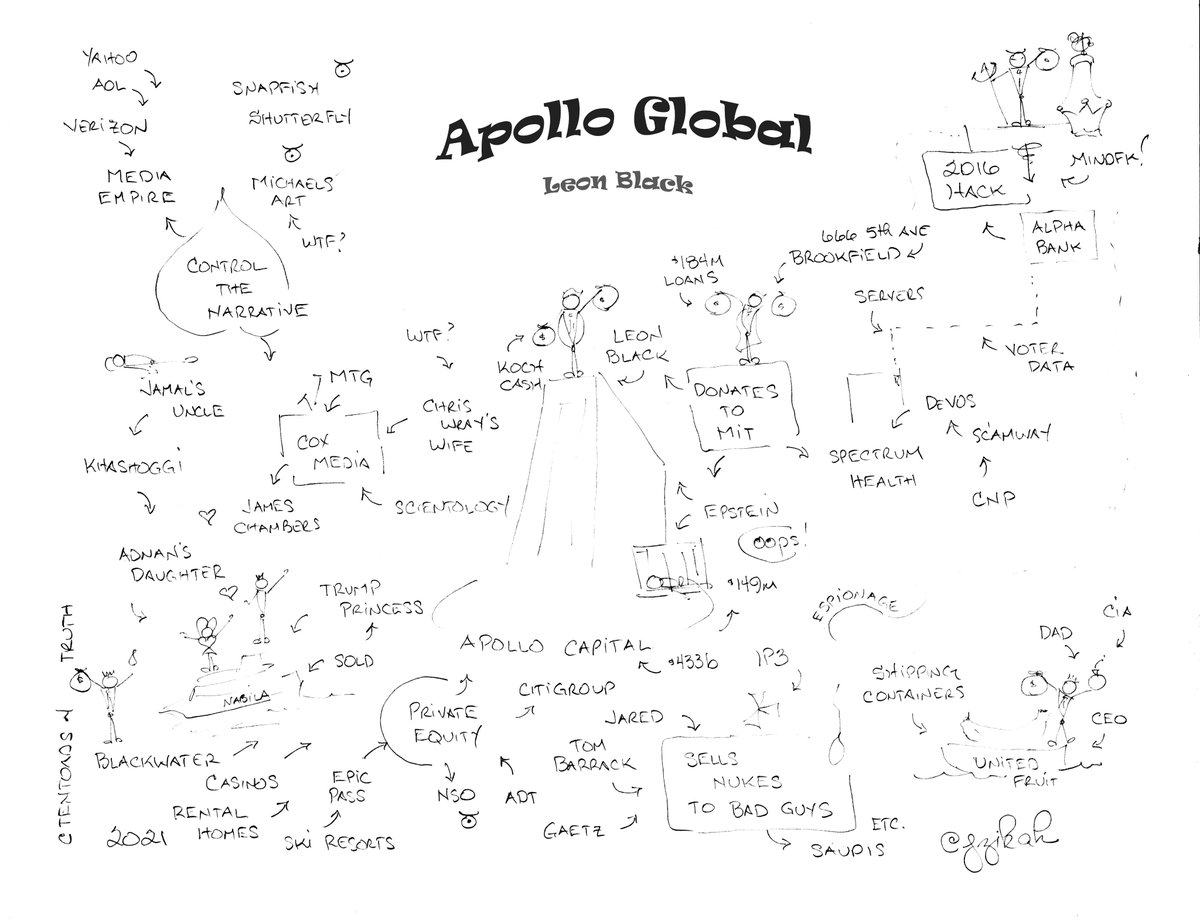 Apollo Global
Leon Black
YAHOO
AOL
VERIZON
MEDIA
EMPIRE
SNAPFISH
SHUTTERFLY
MICHAELS'
ART
WTF?
CONTROL
THE
NARRATIVE
2016
HACK
MINDFK!
ALPHA
BANK
666 5th AVE
BROOKFIELD
$184M
LOANS
SERVERS
VOTER
DATA
WTF?
KOCH
CASH
LEON
BLACK
DONATES
TO
MIT
JAMAL'S
UNCLE
MTG
COX
MEDIA
CHRIS
WRAY'S
WIFE
DEVOS
SCAMWAY
SPECTRUM
HEALTH
CNP
KHASHOGGI
JAMES
CHAMBERS
SCIENTOLOGY
EPSTEIN
OOPS!
$149M
ADNAN'S
DAUGHTER
TRUMP
PRINCESS
SOLD
NABILA
ESPIONAGE
CIA
DAD
APOLLO CAPITAL
$433b
IP3
SHIPPING
CONTAINERS
CITIGROUP
PRIVATE
EQUITY
JARED
CEO
BLACKWATER
TOM
BARRACK
SELLS
NUKES
TO BAD GUYS
UNITED
FRUIT
CASINOS
EPIC
PASS
NSO
ADT
RENTAL
HOMES
SKI RESORTS
GAETZ
ETC.
SAUDIS
2021
@gzikah
TRUTH